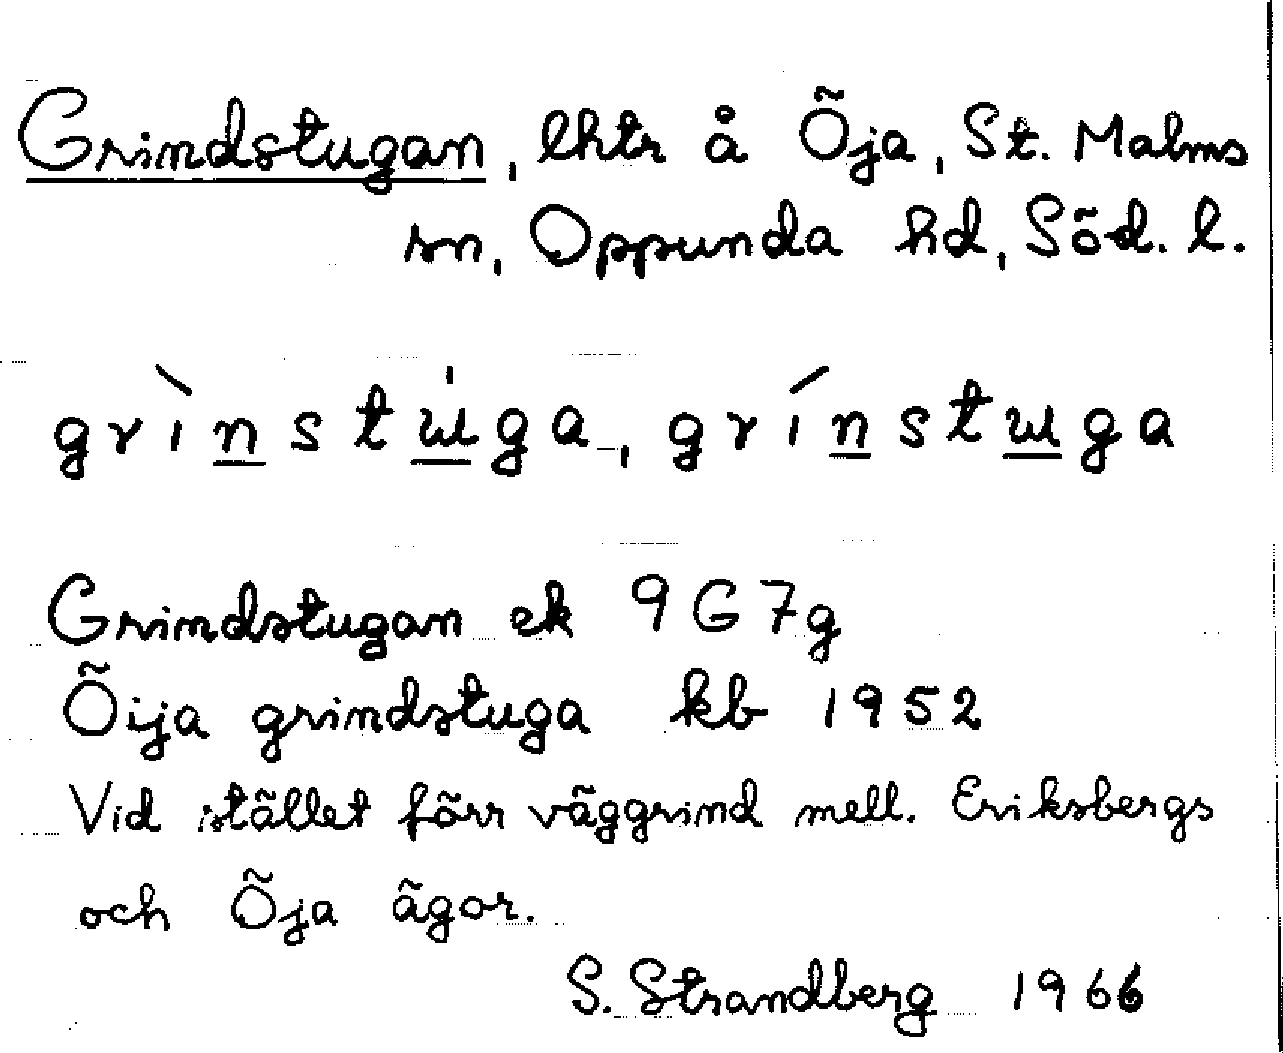 Grindstugan, lhtr å Öja, St. Malms
sn, Oppunda hd, Söd. l.
grìnstɯ̍ga, grínstɯga
Grindstugan ek 9G7g
Öija grindstuga kb 1952
Vid stället förr väggrind mell. Eriksbergs
och Öja ägor.
S. Strandberg 1966